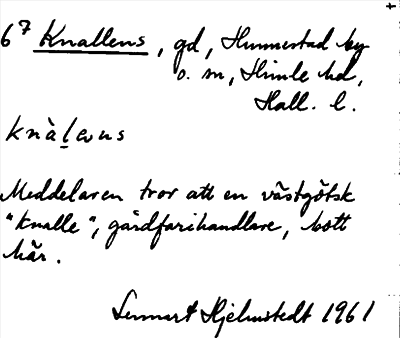 6⁷ Knallens, gd, Hunnestad by
o. sn, Himle hd,
Hall. l.
knàḷens
Meddelaren tror att en västgötsk
"knalle", gårdfarihandlare, bott
här.
Lennart Hjelmstedt 1961